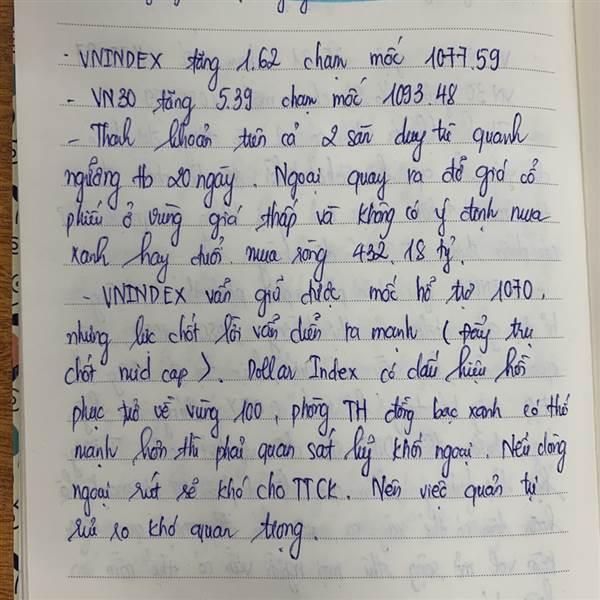 - VNINDEX tăng 1.62 chạm mốc 1077.59
- VN30 tăng 5.39 chạm mốc 1093.48
- Thanh khoản trên cả 2 sàn duy trì quanh
ngưỡng tb 20 ngày. Ngoại quay ra đỡ giá cổ
phiếu ở vùng giá thấp và không có ý định mua
xanh hay đuổi. mua ròng 432,18 tỷ.
- VNINDEX vẫn giữ được mốc hỗ trợ 1070,
nhưng lực chốt lời vẫn diễn ra mạnh ( đẩy trụ
chốt mid cap ). Dollar Index có dấu hiệu hồi
phục trở về vùng 100, phòng TH đồng bạc xanh có thể
mạnh hơn thì phải quan sát kỹ khối ngoại. Nếu dòng
ngoại rút sẽ khó cho TTCK. Nên việc quản trị
rủi ro khá quan trọng.